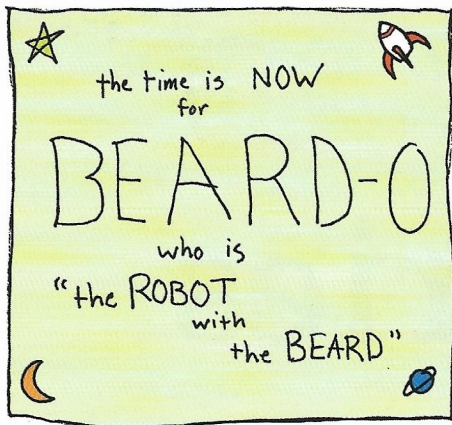 the time is NOW
for
BEARD-O
who is
"the ROBOT
with
the BEARD"